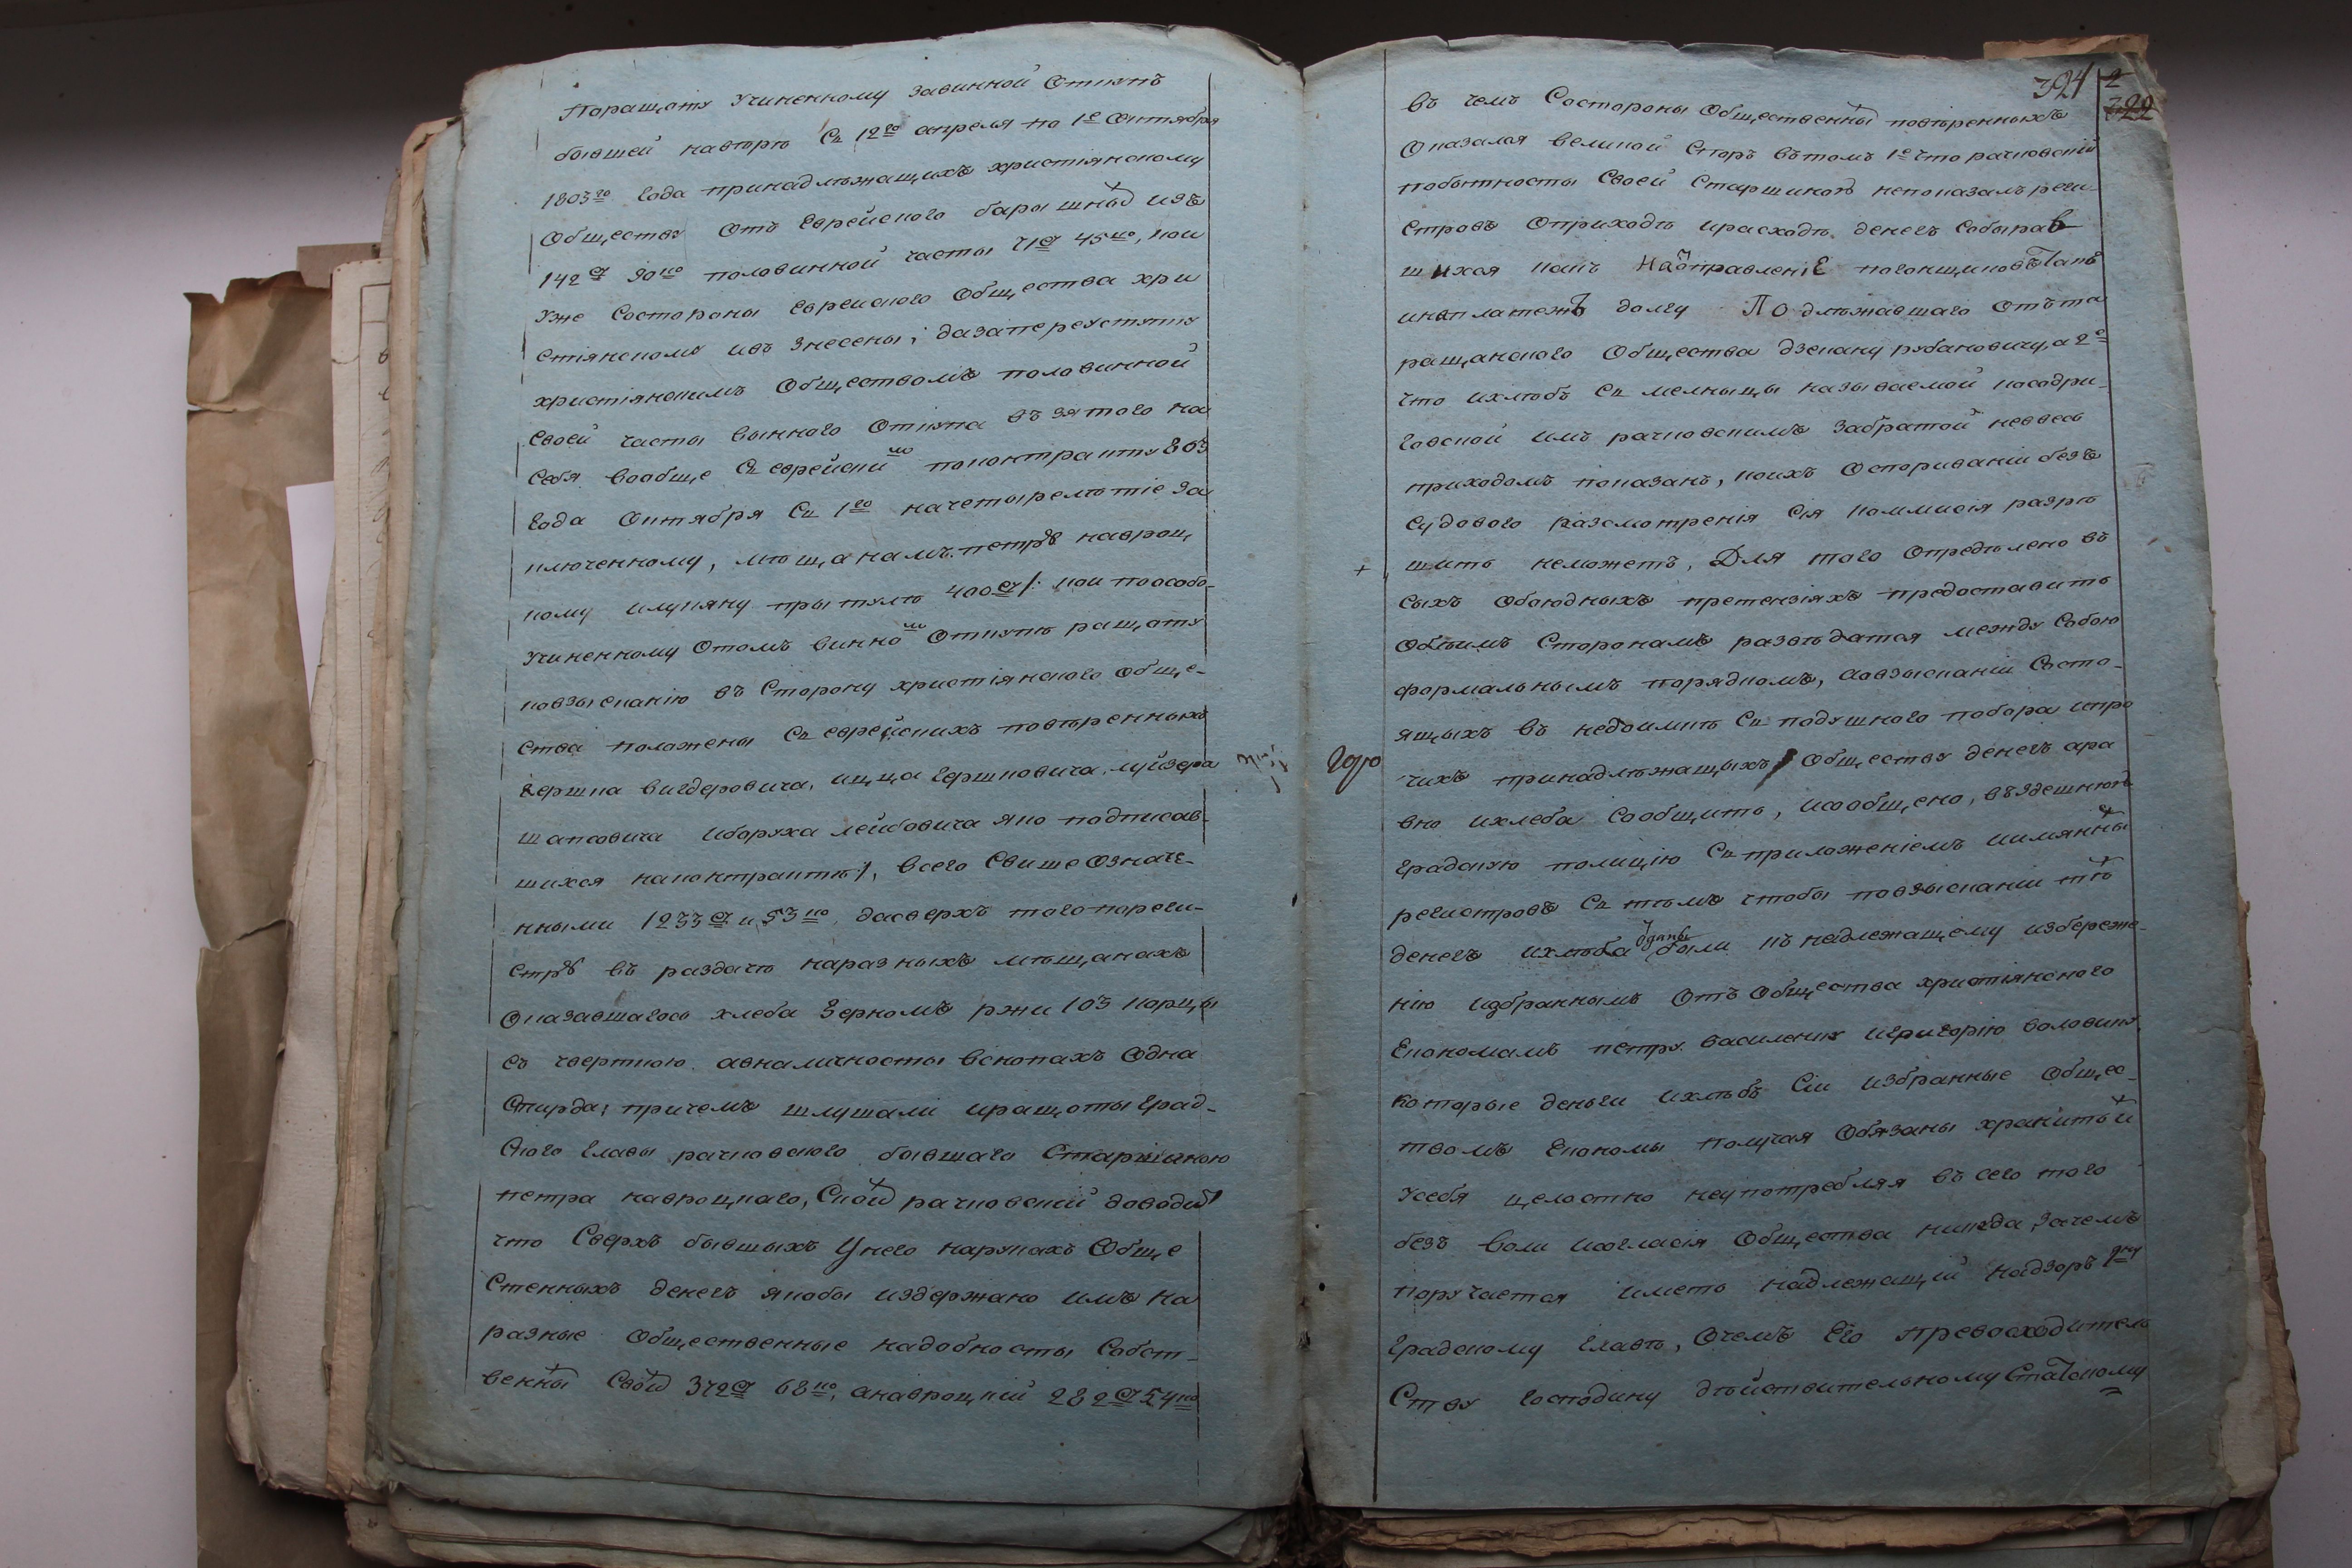 Поращоту учиненному завинной Откупъ
бывшей навторе Съ 12го апреля по 1е Октября
1803го года принадлѣжащихъ христіянскому
Обществу Отъ Еврейского барышны изъ
142 р 90ко половинной части 71р 45ко, кои
уже Состороны еврейского Общества хри
стіянскому ивъ знесены; дазапереуступку
христіянскимъ Обществомъ половинной
Своей части винного Откупа взятого на
Себя вообще Съ еврейским поконтракту 803
года Октября Съ 1го начетырелѣтіе за
ключенному, мѣщанамъ петру наврощ
кому илукяну притулѣ 400р/: кои поособо-
учиненному Отомъ винном Откупѣ ращоту
повзысканію въ Сторону христіянского Обще-
ства положены Съ еврейскихъ повѣренныхъ
гершка вигдеровича, ицка гершковича, луйзера
шапсовича иборуха лейбовича яко подписав-
шихся наконтрактѣ/, всего Свише Означе-
нными 1233р и 53ко, дасверхъ того пореги-
стру въ раздачѣ наразныхъ мѣщанахъ
Оказавшагось хлеба Зерномъ ржи 103 корцы
съ чверткою авналичносты вскопахъ Одна
Стирда; причемъ шлушали иращоты град-
ского главы рачковского бывшаго Старшиною
петра наврощкаго, Скои рачковский доводи
что Сверхъ бывшыхъ Унего нарукахъ Обще
Стенныхъ денегъ якобы издержано имъ на
разные Общественные надобносты Собст-
венны Свои 372р 68ко, анаврощкій 282р 54ко
321 2
322
въ чемъ Состороны Общественны повѣренныхъ
Оказался великой Споръ вътомъ 1е что рачковскій
побытносты Своей Старшиною непоказалъ реги-
стровъ Оприходѣ ирасходѣ денегъ Собырав
шихся какъ на отправленіе погонщиковъ такъ
инаплатежъ долгу Подлѣжавшаго Отъта
ращанского Общества дзекану рубановичу, а 2е
что ихлѣбъ Съ мелныцы називаемой посадри-
говской имъ рачковскимъ забратой невесь
приходомъ показанъ, коихъ Оспориваніи безъ
Судового разсмотренія Сія коммисія разрѣ
шить неможетъ, Для того Опредѣлено въ
Сыхъ Обоюдныхъ претензіяхъ предоставить
Обѣимъ Сторонамъ развѣдатся между Собою
формальнымъ порядкомъ, аовзысканіи Състо-
ящыхъ въ недоимкѣ Съ подушного побора ипро
чихъ принадлѣжащыхъ Обществу денегъ ара
вно ихлеба Сообщить, исообщено, въздешнюю
градскую полицію Съ приложеніемъ иимянны
регистровъ Съ тѣмъ чтобы повзысканіи тѣ
денегъ ихлѣба отданы были къ надлежащему избереже-
нію избраннымъ Отъ Общества христіянского
Економамъ петру василенку игригорію воловику
Которые деньги ихлѣбъ Сіи избранные Общес-
твомъ Економы получая Обязаны хранить и
усебя целостно неупотребляя въ сего того
безъ воли исогласія Общества никуда, зачемъ
поручается имѣть надлежащій надзоръ
градскому главѣ, Очемъ Его превосходитель
Ству господину дѣйствительному Статскому